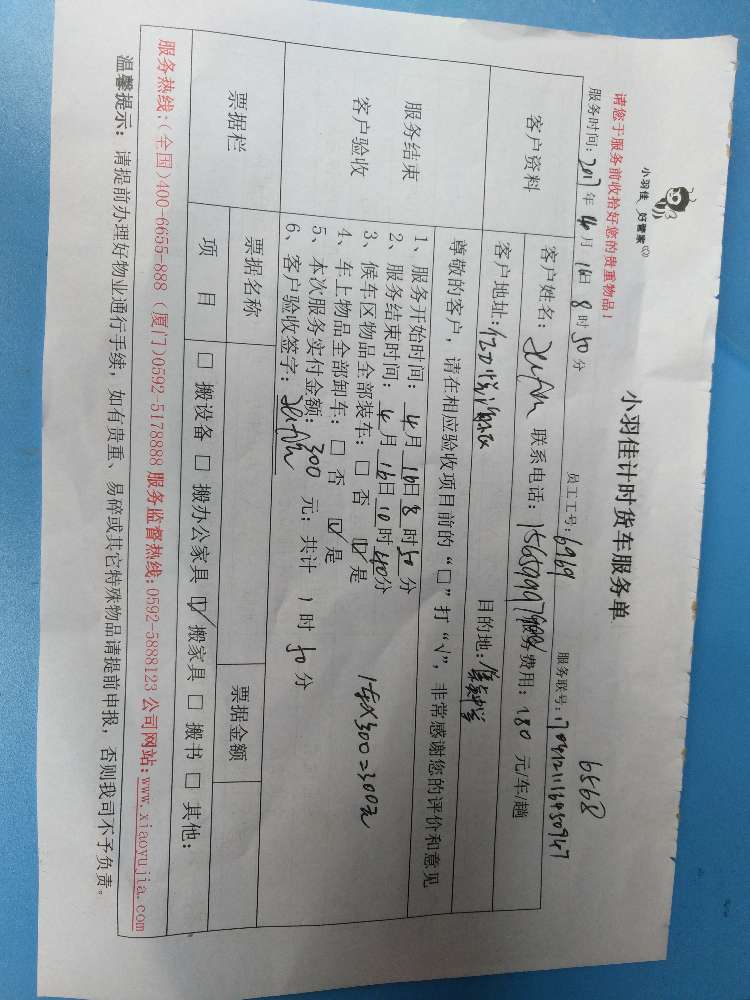 小羽佳 好管家
小羽佳计时货车服务单
6568
请您于服务前收拾好您的贵重物品！
服务时间：2017年4月16日8时50分 员工工号：6969 服务联号：
客户资料
客户姓名： 联系电话： 服务费用：180元/车/趟
客户地址： 目的地：
尊敬的客户，请在相应验收项目前的“□”打“√”，非常感谢您的评价和意见
服务结束
客户验收
1、服务开始时间：4月16日8时50分
2、服务结束时间：4月16日10时40分
3、候车区物品全部装车：□否 ☑是
4、车上物品全部卸车：□否 ☑是
5、本次服务实付金额：300元；共计1时50分
1车X300=300元
6、客户验收签字：
票据栏
票据名称 票据金额
项目 □搬设备 □搬办公家具 ☑搬家具 □搬书 □其他：
服务热线：(全国)400-6655-888 (厦门)0592-5178888 服务监督热线：0592-5888123 公司网站：www.xiaoyujia.com
温馨提示：请提前办理好物业通行手续，如有贵重、易碎或其它特殊物品请提前申报，否则我司不予负责。